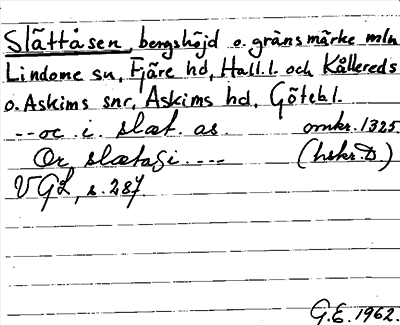 Slättåsen, bergshöjd o. gränsmärke mln
Lindome sn, Fjäre hd, Hall.l. och Kållereds
o. Askims snr, Askims hd, Götebl.
-- oc. i. slæt. as. omkr. 1325
Or slætasi --- (hskr. D)
VGL, s. 287.
G.E. 1962.